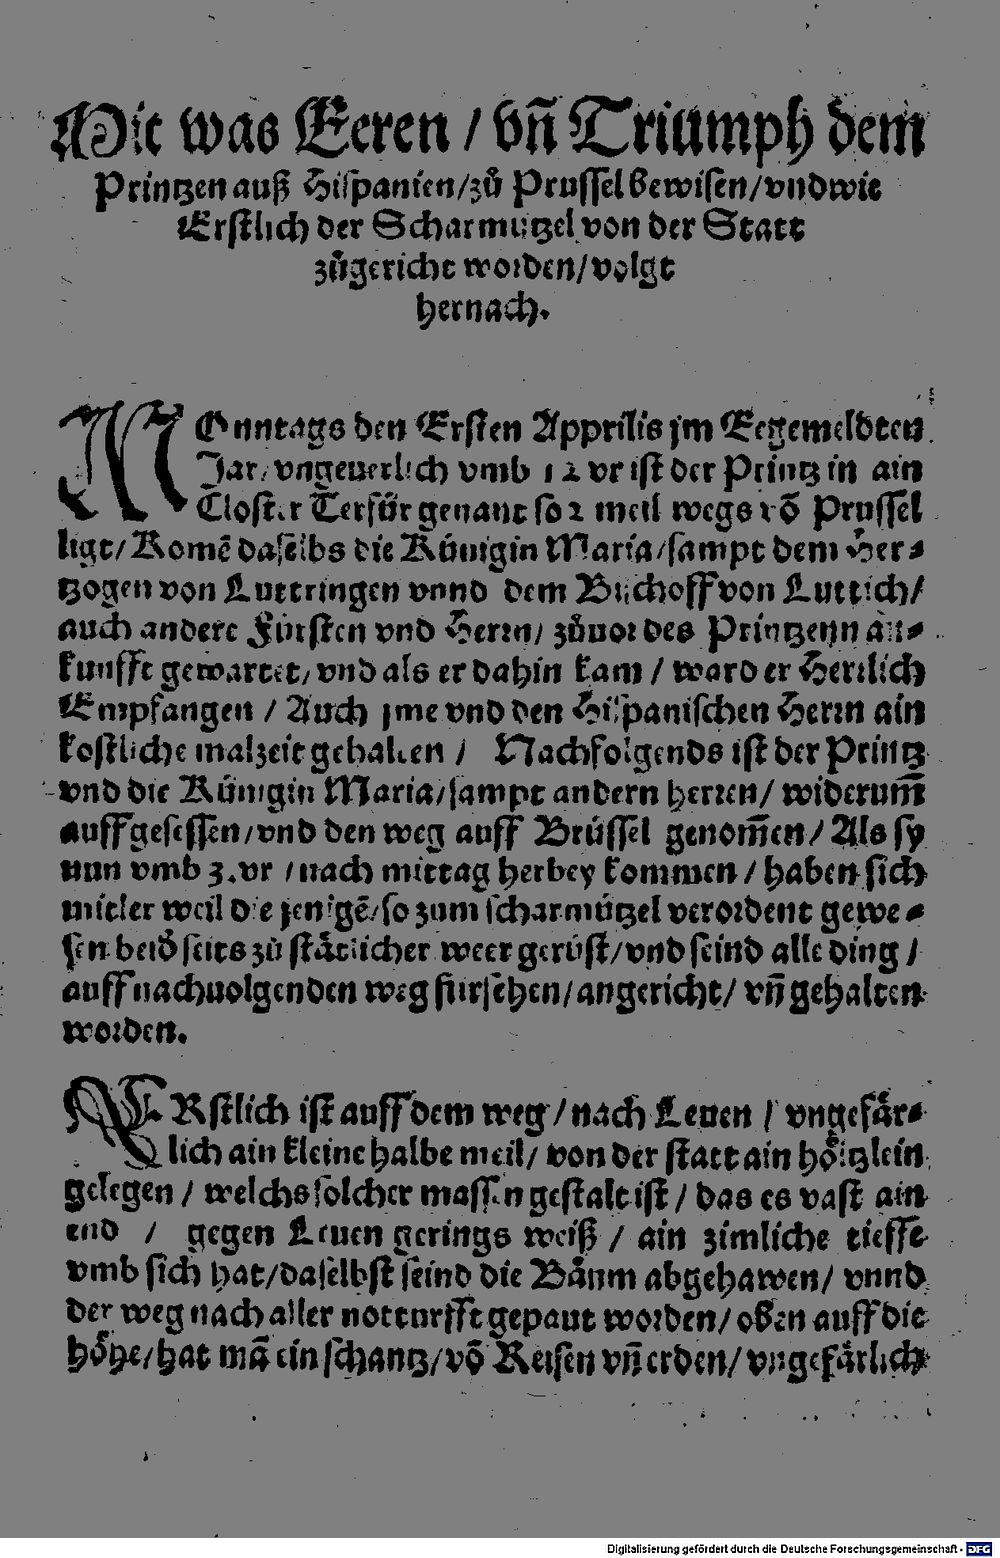 Mit was Eeren / vñ Triumph dem
Printzen auß Hispanien/zů Prussel bewisen/vnd wie
Erstlich der Scharmutzel von der Statt
zůgericht worden/volgt
hernach.
MOnntags den Ersten Apprilis jm Eegemeldten
Jar/vngeuerlich vmb 12 vr ist der Printz in ain
Closter Terfür genant so 2 meil wegs võ Prussel
ligt/Komẽ daselbs die Künigin Maria/sampt dem Her⸗
tzogen von Luttringen vnnd dem Bischoff von Luttich/
auch andere Fürsten vnd Herrn/zůuor des Printzenn an⸗
kunfft gewartet/vnd als er dahin kam / ward er Herrlich
Empfangen / Auch jme vnd den Hispanischen Herrn ain
kostliche malzeit gehalten / Nachfolgends ist der Printz
vnd die Künigin Maria/sampt andern herren/ widerum̃
auffgesessen/vnd den weg auff Brüssel genom̃en/ Als sy
nun vmb 3.vr /nach mittag herbey kommen / haben sich
mitler weil die jenigẽ/so zum scharmützel verordent gewe⸗
sen beid̃ seits zů stätlicher weer gerüst/vnd seind alle ding /
auff nachuolgenden weg fürsehen/angericht/ vñ gehalten
worden.
ERstlich ist auff dem weg /nach Leuen / vngefär⸗
lich ain kleine halbe meil/ von der statt ain höltzlein
gelegen / welchs solcher massen gestalt ist / das es vast ain
end / gegen Leuen gerings weiß / ain zimliche tieffe
vmb sich hat/daselbst seind die Bäum abgehawen/ vnnd
der weg nach aller notturfft gepaut worden/ oben auff die
höhe/hat mã ein schantz/võ Reisen vñ erden/ vngefärlich
Digitalisierung gefördert durch die Deutsche Forschungsgemeinschaft - DFG